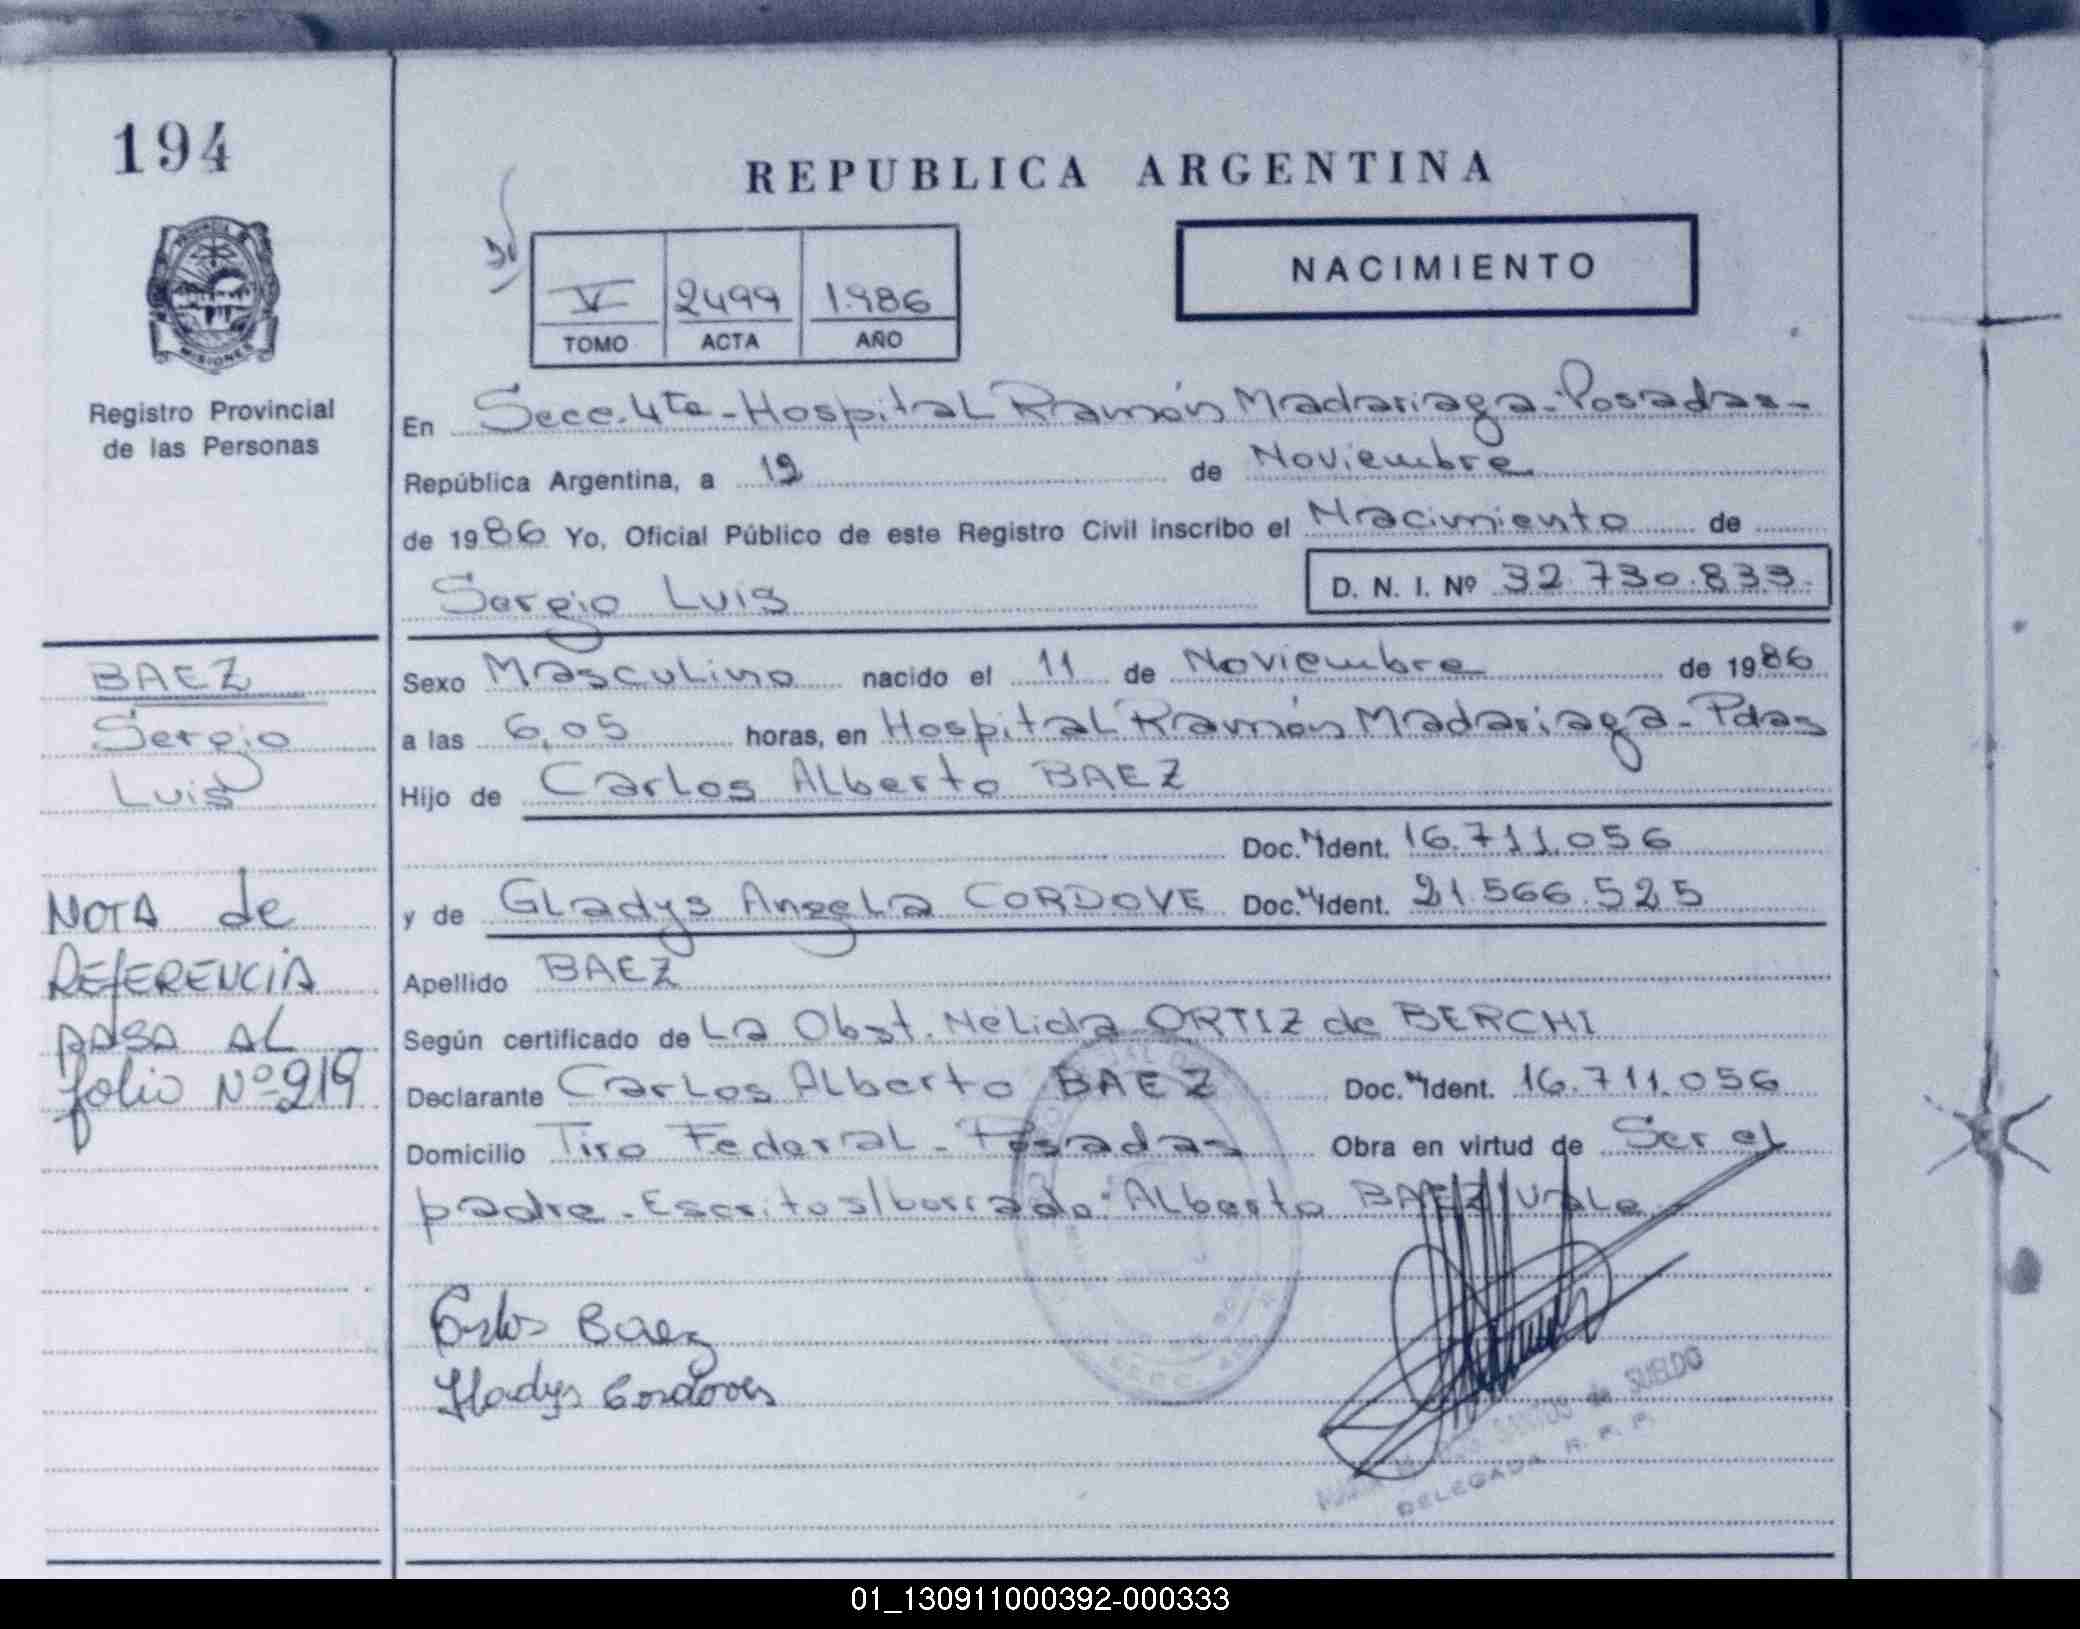 194
REPUBLICA ARGENTINA
V 2499 1.986
TOMO ACTA AÑO
NACIMIENTO
MISIONES
Registro Provincial
de las Personas
En Secc. 4ta - Hospital Ramón Madariaga - Posadas -
República Argentina, a 12 de Noviembre
de 1986 Yo, Oficial Público de este Registro Civil inscribo el Nacimiento de
Sergio Luis
D. N. I. Nº 32.730.833.
BAEZ
Sergio
Luis
Sexo Masculino nacido el 11 de Noviembre de 1986
a las 6,05 horas, en Hospital Ramón Madariaga - Pdas
Hijo de Carlos Alberto BAEZ
Doc. N Ident. 16.711.056
y de Gladys Angela CORDOVE Doc. N Ident. 21.566.525
Apellido BAEZ
Según certificado de La Obst. Nelida ORTIZ de BERCHI
Declarante Carlos Alberto BAEZ Doc. N Ident. 16.711.056
Domicilio Tiro Federal - Posadas Obra en virtud de Ser el
padre. Escrito s/borrado: Alberto BAEZ Vale
NOTA de
REfERENCiA
PASA AL
folio Nº 219
Carlos Baez
Gladys Cordoves
de SUELDO
DELEGADA R. P. P.
01_130911000392-000333